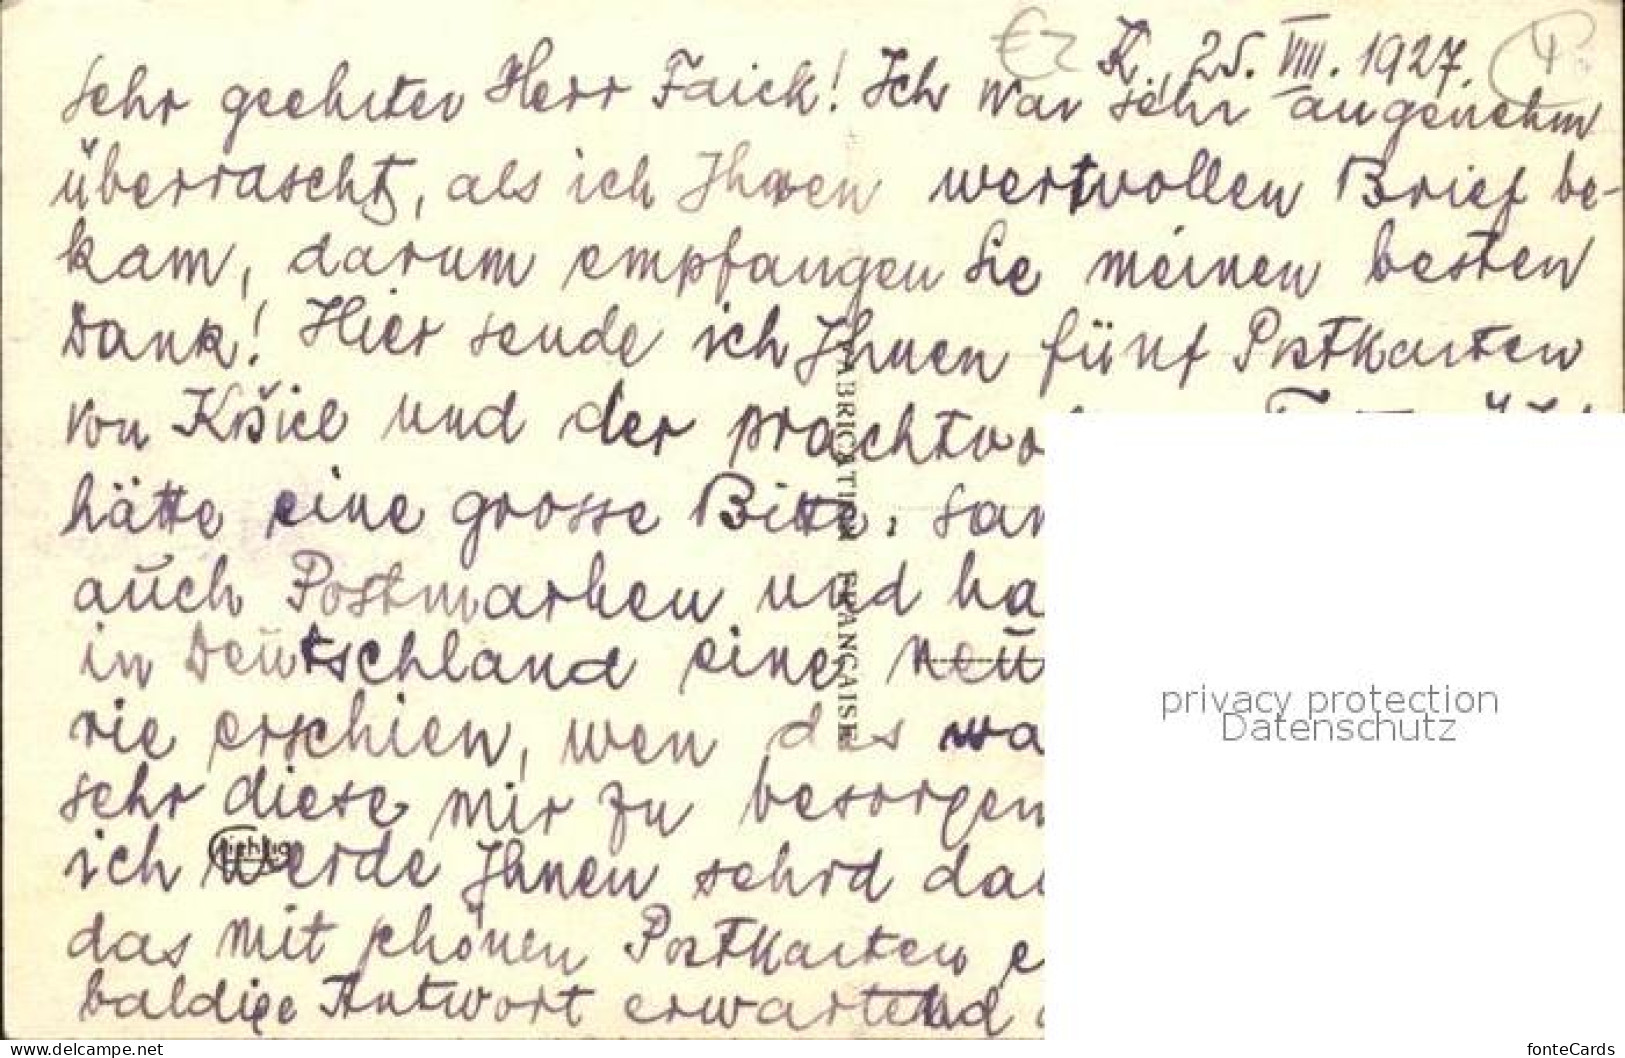 K., 25. VIII. 1927.
Sehr geehrter Herr Faick! Ich war sehr angenehm
überrascht, als ich Ihren wertvollen Brief be-
kam, darum empfangen Sie meinen besten
Dank! Hier sende ich Ihnen fünf Postkarten
von Košice und der prachtvo
hätte eine grosse Bitte: Sam
auch Postmarken und ha
in Deutschland eine neu
rie erschien, wen das wa
sehr diese mir zu besorgen
ich werde Ihnen sehrd da
das mit schönen Postkarten e
baldige Antwort erwartend
FABRICATION FRANÇAISE
privacy protection
Datenschutz
www.delcampe.net
fonteCards